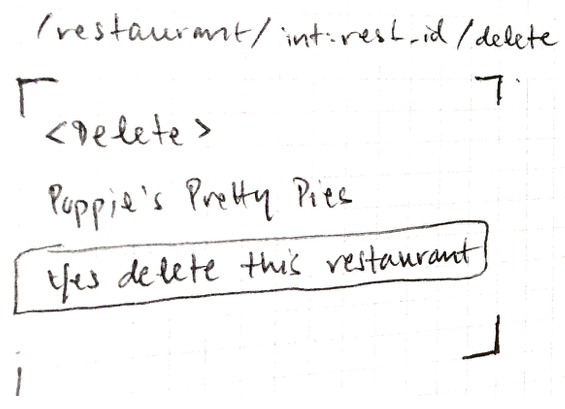 /restaurant/int:rest_id/delete
<Delete>
Puppie's Pretty Pies
Yes delete this restaurant